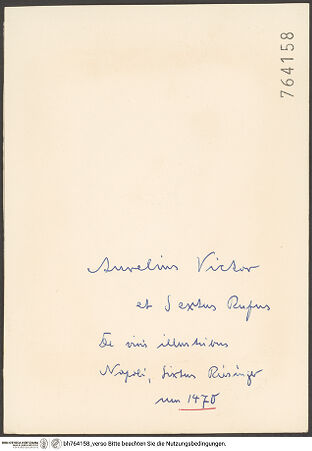 764158
Aurelius Victor
et Sextus Rufus
De viris illustribus
Napoli, Sixtus Riesinger
um 1470
bh764158_verso Bitte beachten Sie die Nutzungsbedingungen.